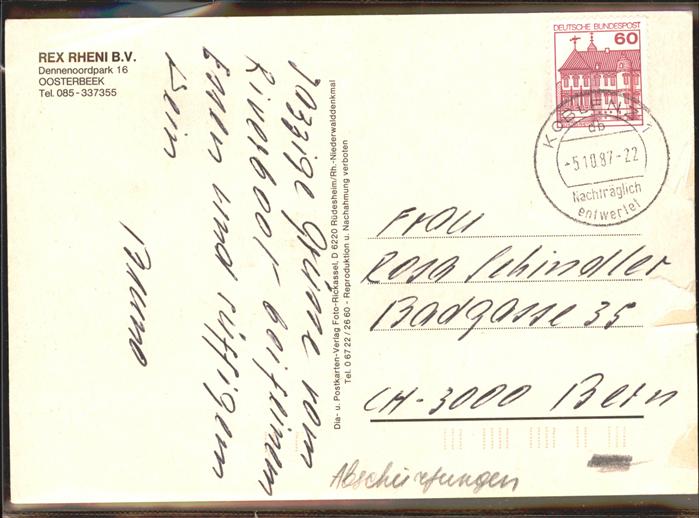 REX RHENI B.V.
Dennenoordpark 16
OOSTERBEEK
Tel. 085-337355
Jazzige Grüsse vom
Riverboat bei feinem
Essen und süffigem
Wein
Bruno
Dia- u. Postkarten-Verlag Foto-Rickassel, D 6220 Rüdesheim/Rh.-Niederwalddenkmal
Tel. 0 67 22 / 26 60 - Reproduktion u. Nachahmung verboten
DEUTSCHE BUNDESPOST
60
KOBLENZ 1
db
-5.10.87-22
Nachträglich
entwertet
Frau
Rosa Schindler
Badgasse 35
CH-3000 Bern
Abschürfungen